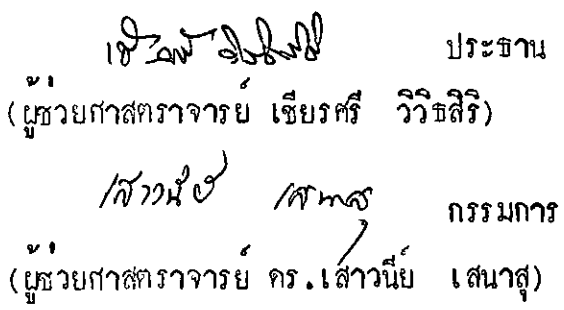 ประธาน
(ผู้ช่วยศาสตราจารย์ เชียรศรี วิวิธสิริ)
เสาวนีย์ เสนาสุ กรรมการ
(ผู้ช่วยศาสตราจารย์ ดร.เสาวนีย์ เสนาสุ)